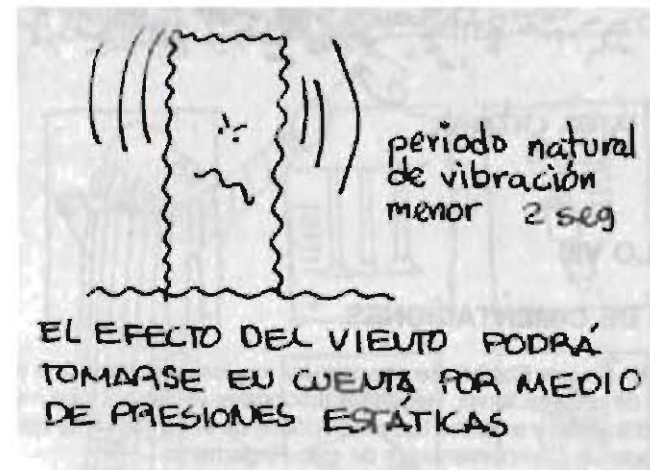 periodo natural
de vibración
menor 2 seg
EL EFECTO DEL VIENTO PODRÁ
TOMARSE EN CUENTA POR MEDIO
DE PRESIONES ESTÁTICAS